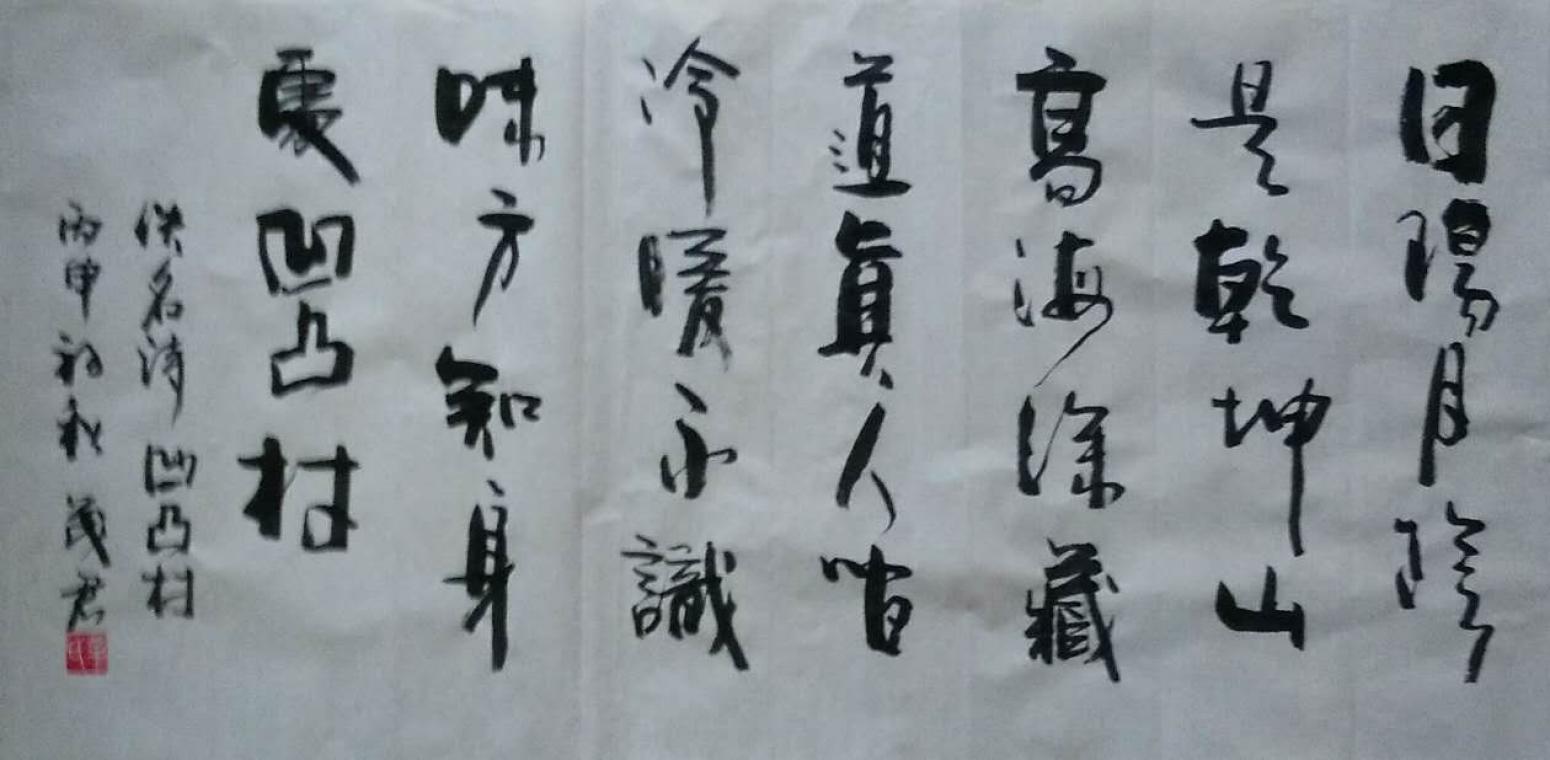 日陽月陰
是乾坤山
高海深藏
道眞人
冷暖不識
味方知身
處凹凸村
佚名诗 凹凸村
丙申初秋 茂君